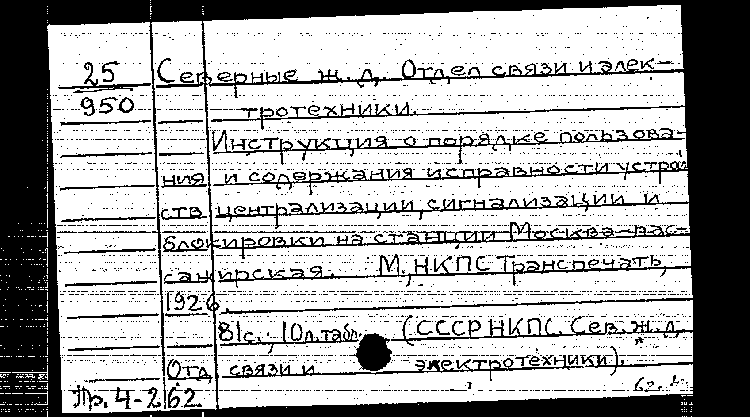 25
950
Северные ж. д. Отдел связи и элек-
тротехники.
Инструкция о порядке пользова-
ния и содержания исправности устрой
ств централизации, сигнализации и
блокировки на станции Москва-пас-
сажирская. М., НКПС Транспечать,
1926.
81с.; 10л.табл. (СССР НКПС. Сев. ж. д.
Отд. связи и электротехники).
Пр. 4-262